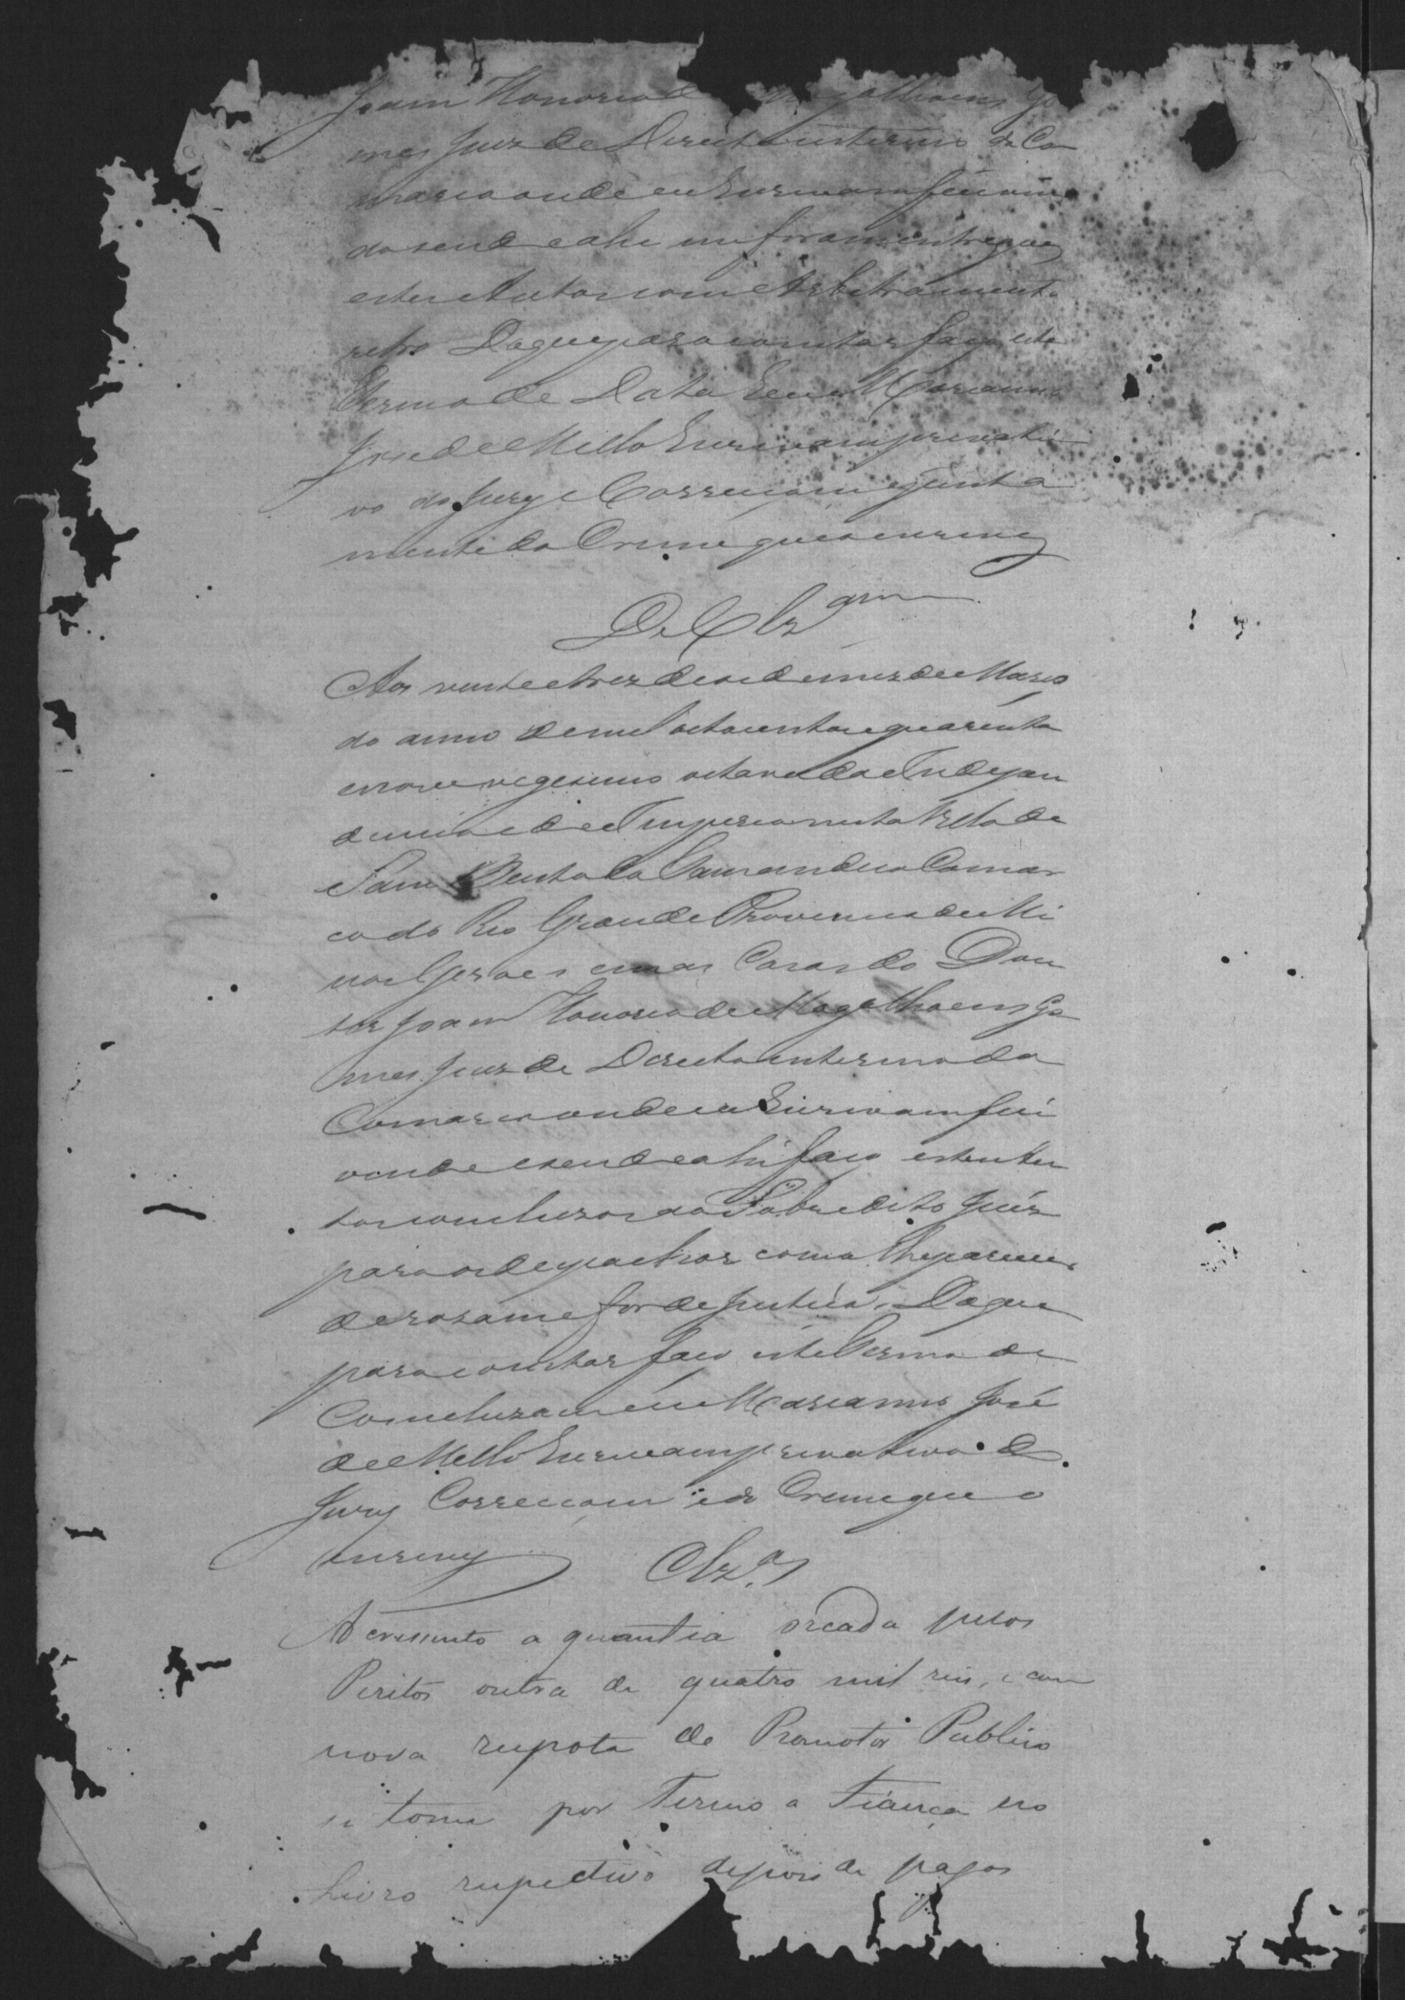 Joam Honorio de Magalhaens Go
mes Juiz de Direito interino da Co
marca onde eu Escrivam fui vin
do sendo e ahi me foram entregues
estes Autos com o Arbitramento
retro Do que para constar faço este
Termo de Data Eu Marianno
José de Mello Escrivam privati
vo do Jury e Correiçam e junta
mente do Crime que o escrevy
De Clzam
Aos vinte e trez dias do mez de Março
do anno de mil oito centos e quarenta
e nove vigesimo oitavo da Indepen
dencia e do Imperio nesta Villa de
Sam Bento do Tamanduá Comar
ca do Rio Grande Provincia de Mi
nas Geraes em as Casas do Dou
tor Joam Honorio de Magalhaens Go
mes Juiz de Direito interino da
Comarca onde eu Escrivam fui
vindo e sendo ahi faço estes Au
tos concluzos ao Sobredito Juiz
para os despachar como lhe parecer
de rasam e for de justiça. Do que
para constar faço este Termo de
Concluzam eu Marianno José
de Mello Escrivam privativo do
Jury Correiçam e do Crime que o
escrevy Clz.os
Acrescento a quantia orçada pelos
Peritos outra de quatro mil reis, e com
nova resposta do Promotor Publico
se tome por Termo a Fiança no
Livro respectivo depois de pagos